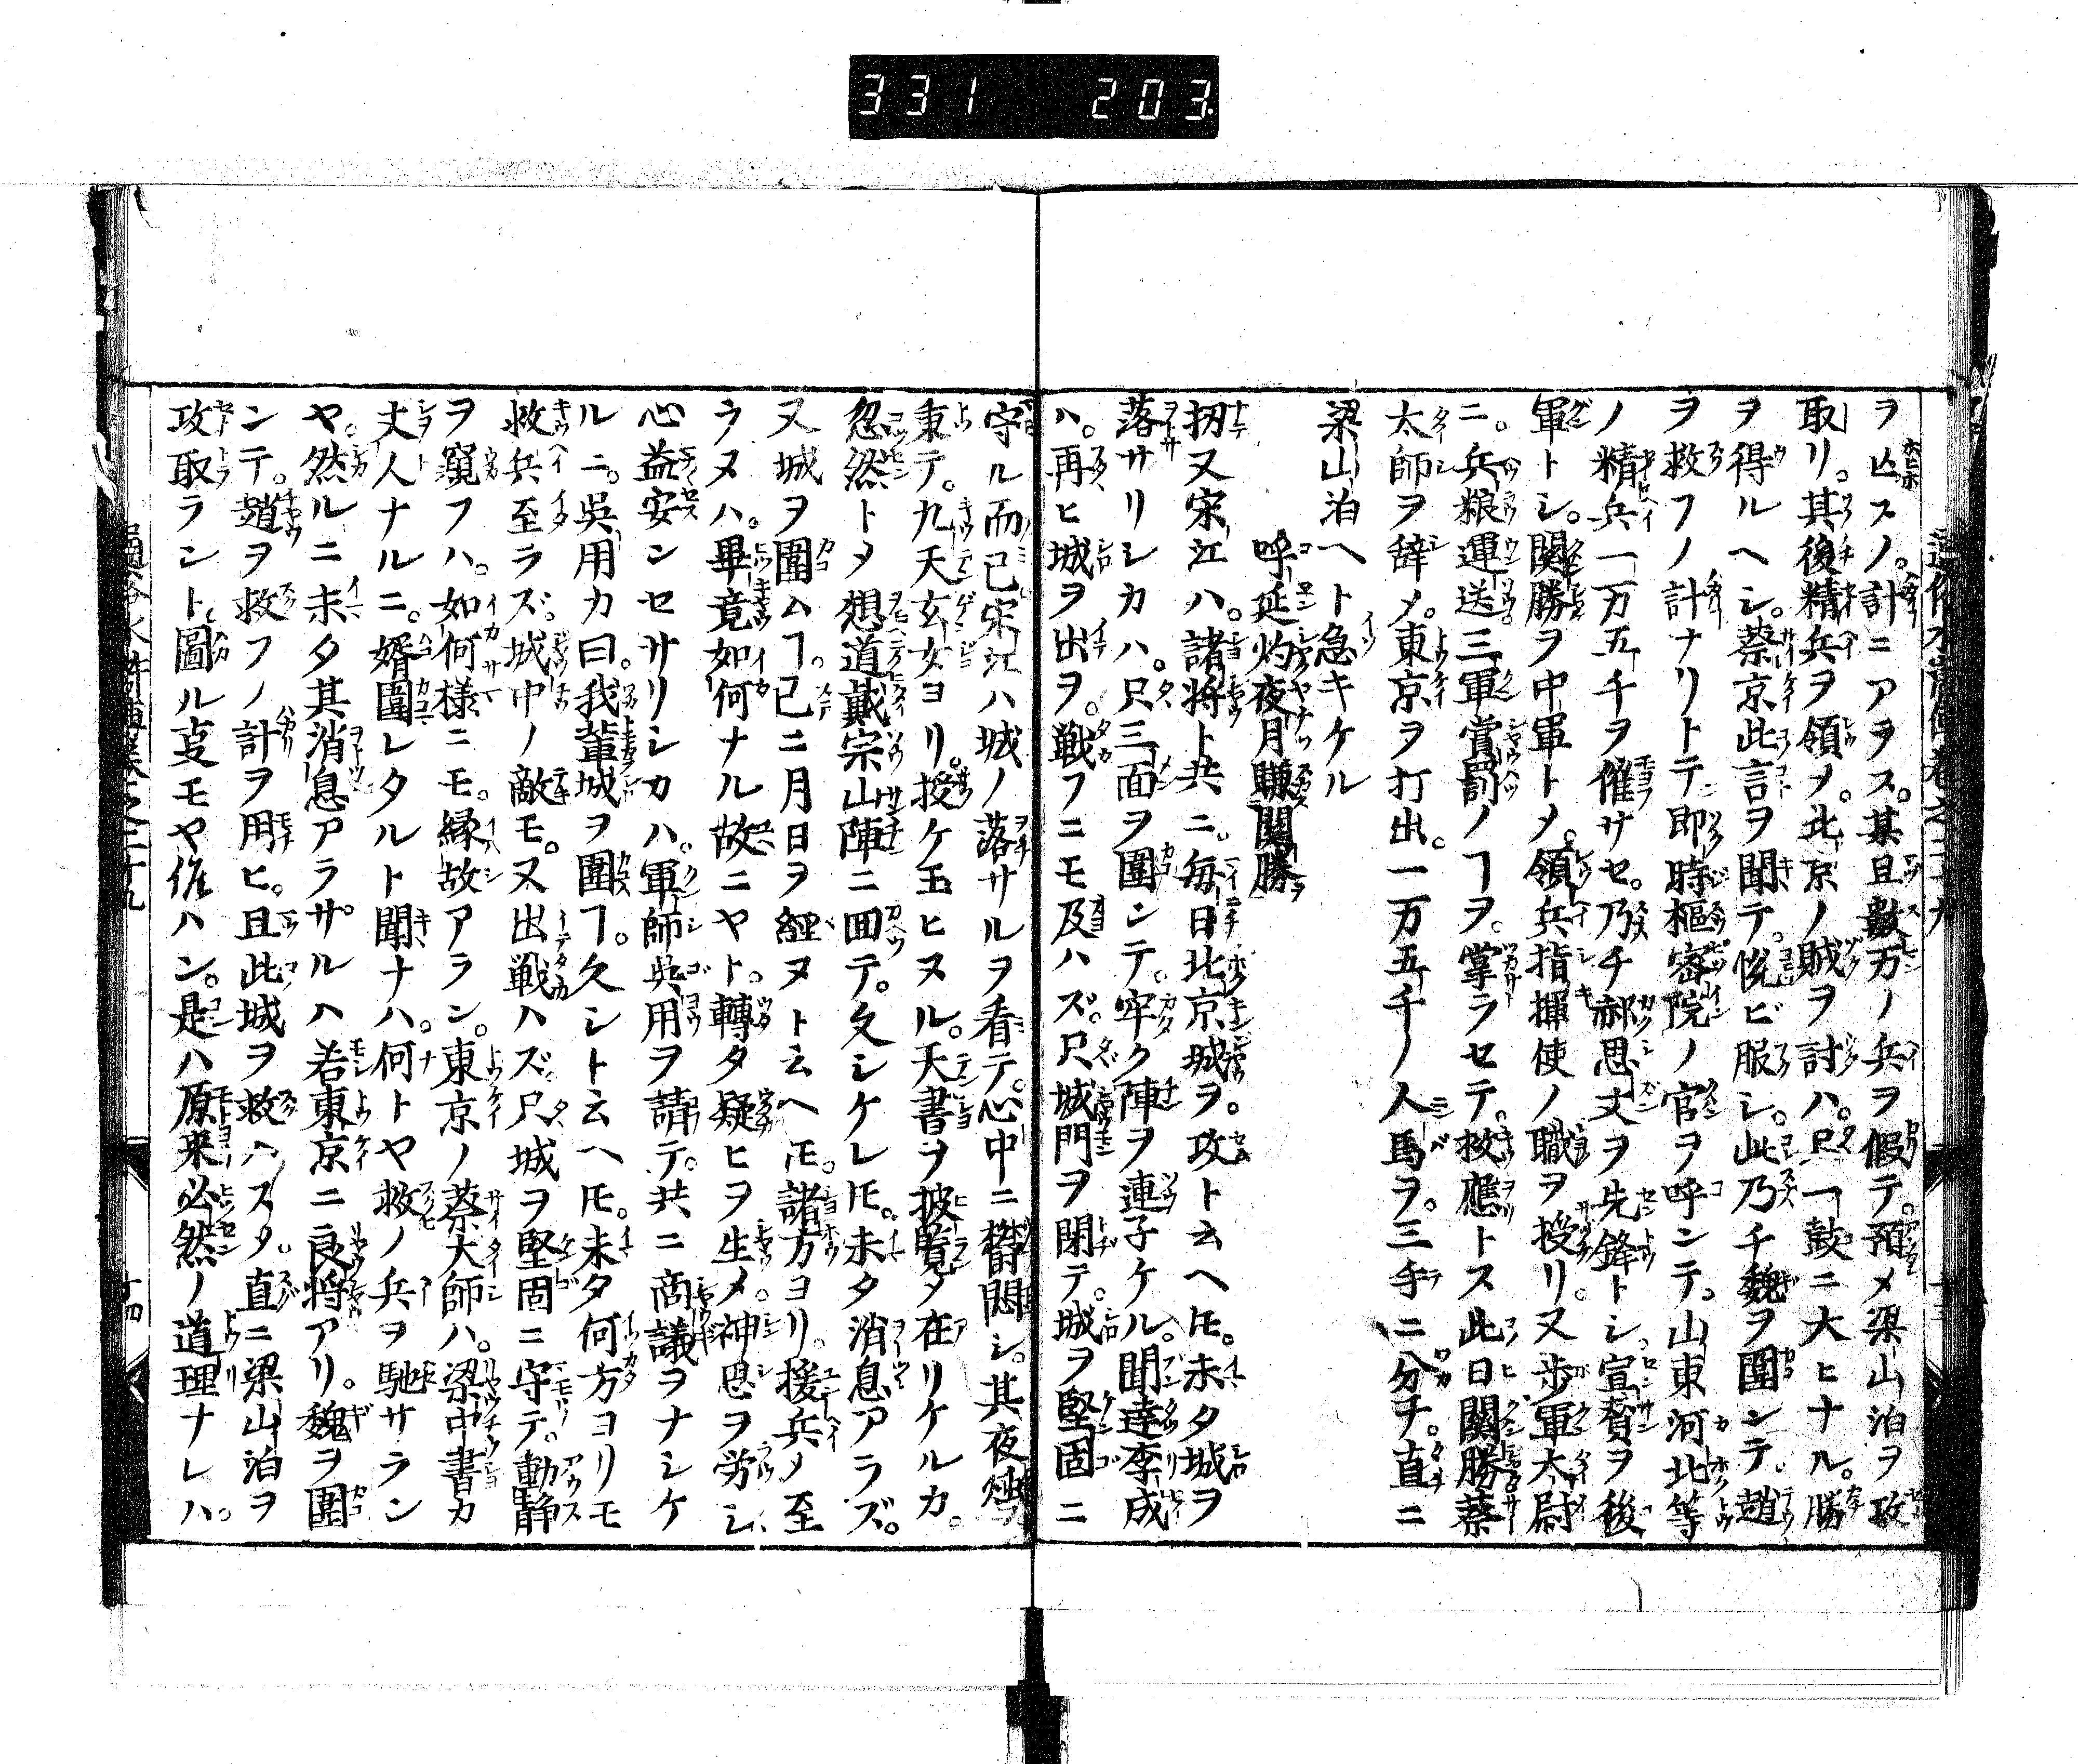 331 203
ヲ亡スノ。計ニアラス。某且數万ノ兵ヲ假テ。預メ梁山泊ヲ攻
取リ。其後精兵ヲ領メ。北京ノ賊ヲ討ハ。只一鼓ニ大ヒナル。勝
ヲ得ルヘシ。蔡京此言ヲ聞テ。悦ビ服シ。此乃チ魏ヲ圍ンテ。趙
ヲ救フノ計ナリトテ即時樞密院ノ官ヲ呼ンテ。山東河北等
ノ精兵一万五千ヲ催サセ。乃チ郝思文ヲ先鋒トシ。宣賛ヲ後
軍トシ。関勝ヲ中軍トメ。領兵指揮使ノ職ヲ授リ。又歩軍大尉
ニ。兵粮運送三軍賞罰ノヿヲ。掌ラセテ。救應トス此日關勝蔡
太師ヲ辞メ。東京ヲ打出。一万五千ノ人馬ヲ。三手ニ分チ。直ニ
梁山泊ヘト急キケル
呼延灼夜月賺關勝
扨又宋江ハ。諸将ト共ニ。毎日北京城ヲ。攻ト云ヘ𪜈。未タ城ヲ
落サリシカハ。只三面ヲ圍ンテ。牢ク陣ヲ連子ケル。聞達李成
ハ。再ヒ城ヲ出ヲ。戦フニモ及ハズ。只城門ヲ閉テ。城ヲ堅固ニ
守ル而已宋江ハ城ノ落サルヲ看テ。心中ニ欝悶シ。其夜燭
秉テ。九天玄女ヨリ。授ケ玉ヒヌル。天書ヲ披覧タ在リケルカ。
忽然トメ想道戴宗山陣ニ囬テ。久シケレ𪜈。未タ消息アラズ。
又城ヲ圍ムヿ。已ニ月日ヲ經ヌト云ヘ𪜈。諸方ヨリ。援兵ノ至
ラヌハ。畢竟如何ナル故ニヤト。轉タ疑ヒヲ生メ。神思ヲ労シ
心益安ンセサリシカハ。軍師呉用ヲ請テ。共ニ商議ヲナシケ
ルニ。呉用カ曰。我輩城ヲ圍ヿ。久シト云ヘ𪜈。未タ何方ヨリモ
救兵至ラズ。城中ノ敵モ。又出戦ハズ。只城ヲ堅固ニ守テ。動静
ヲ窺フハ。如何様ニモ。縁故アラン。東京ノ蔡大師ハ。梁中書カ
丈人ナルニ。婿圍レタルト聞ナハ。何トヤ救ノ兵ヲ馳サラン
ヤ。然ルニ未タ其消息アラザルハ若東京ニ良将アリ。魏ヲ圍
ンテ。趙ヲ救フノ計ヲ用ヒ。且此城ヲ救ハスメ。直ニ梁山泊ヲ
攻取ラント。圖ル㕝モヤ候ハン。是ハ原来必然ノ道理ナレハ。
十四